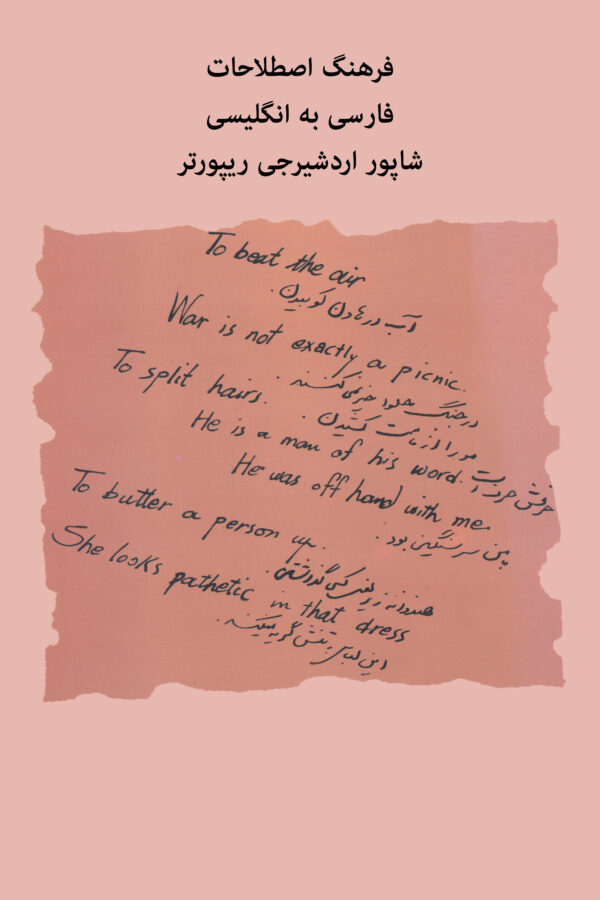 فرهنگ اصطلاحات
فارسی به انگلیسی
شاپور اردشیرجی ریپورتر
To beat the air
آب در هاون کوبیدن.
War is not exactly a picnic.
در جنگ حلوا خیر نمی‌کنند.
To split hairs.
مو را از ماست کشیدن.
He is a man of his word.
حرفش حرف است
He was off hand with me.
با من سرسنگین بود.
To butter a person up.
هندوانه زیر بغل کسی گذاشتن.
She looks pathetic in that dress
این لباس بتنش گریه میکند.